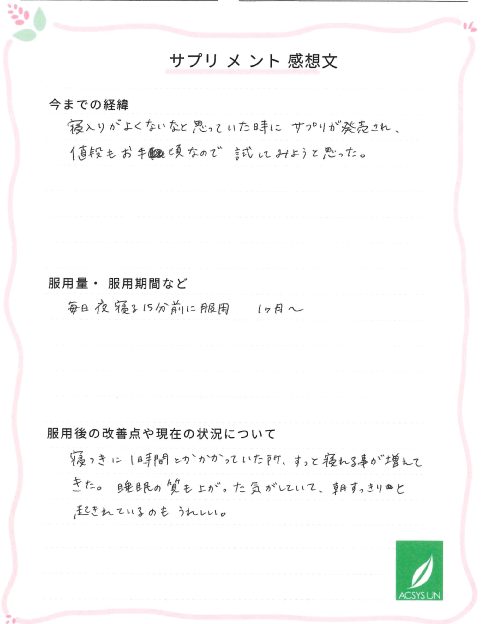 サプリメント感想文
今までの経緯
寝入りがよくないなと思っていた時に サプリが発売され、
値段もお手頃なので 試してみようと思った。
服用量・服用期間など
毎日夜寝る15分前に服用 1ヶ月〜
服用後の改善点や現在の状況について
寝つきに1時間とかかかっていた所、すっと寝れる事が増えて
きた。睡眠の質も上がった気がしていて、朝すっきりと
起きれているのもうれしい。
ACSYS UN